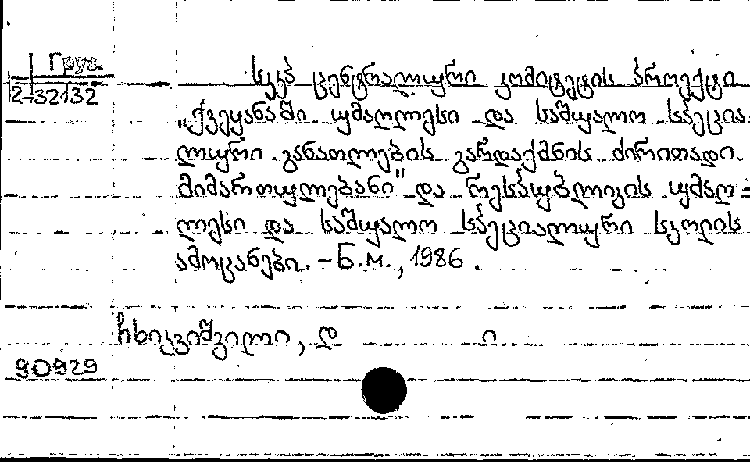 Груз.
2-32132
სკკპ ცენტრალური კომიტეტის პროექტი
„ქვეყანაში უმაღლესი და საშუალო სპეცია-
ლური განათლების გარდაქმნის ძირითადი
მიმართულებანი" და რესპუბლიკის უმაღ-
ლესი და საშუალო სპეციალური სკოლის
ამოცანები. – Б.м., 1986.
ჩხიკვიშვილი, დ ი
90929